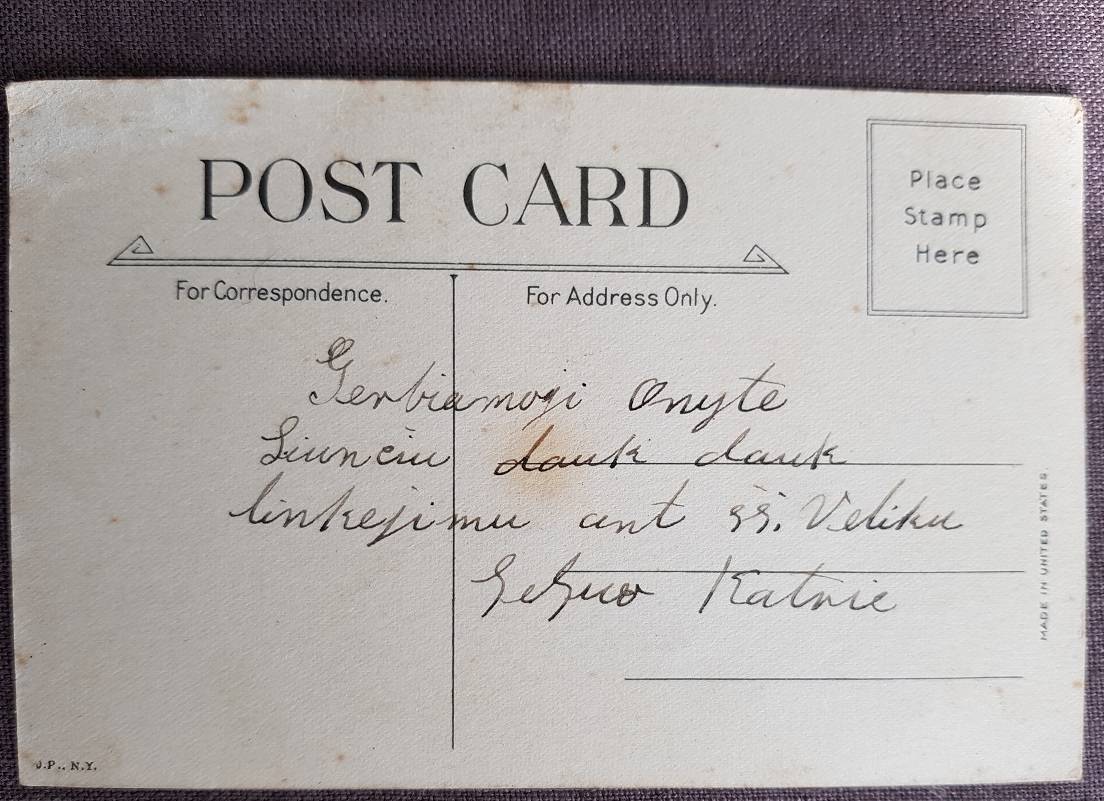 POST CARD
Place
Stamp
Here
For Correspondence.
For Address Only.
Gerbiamoji Onyte
Siunčiu dauk dauk
linkejimu ant šš. Veliku
Katrie
MADE IN UNITED STATES.
J.P., N.Y.